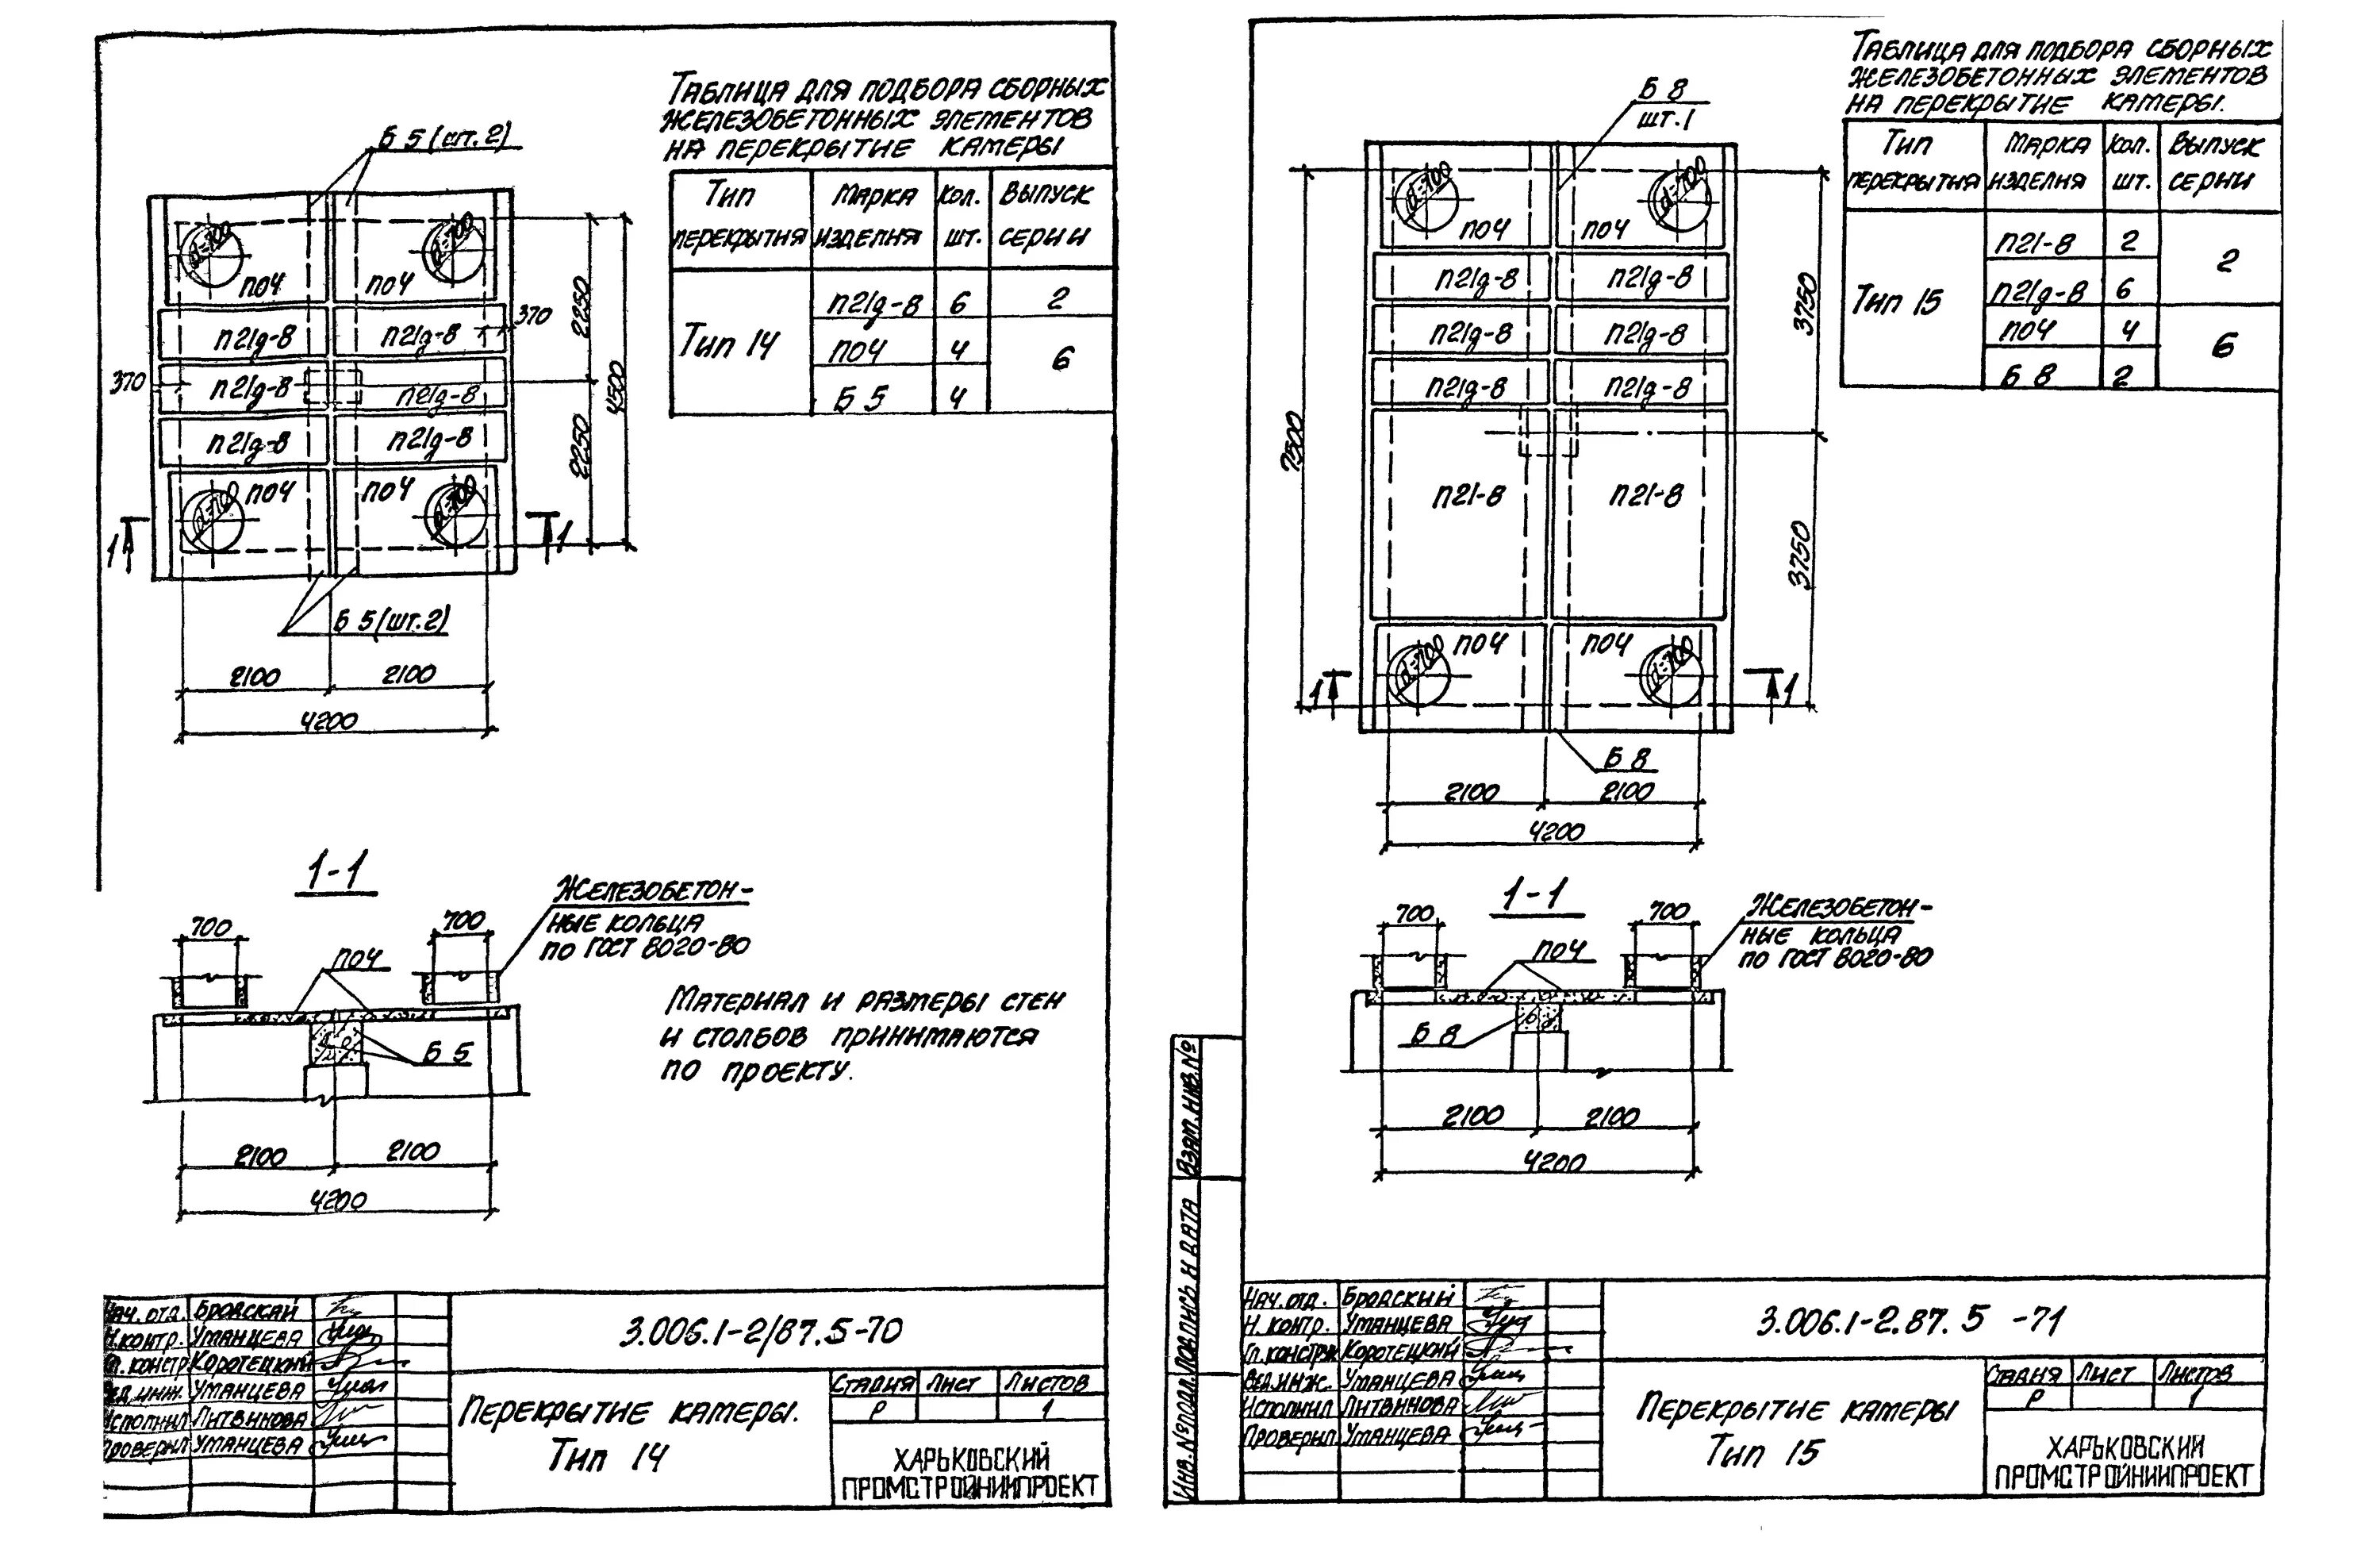 Таблица для подбора сборных
железобетонных элементов
на перекрытие камеры
Тип перекрытия
Марка изделия
Кол. шт.
Выпуск серии
Тип 14
П21д-8 6 2
ПО4 4 6
Б 5 4
Б 5 (шт. 2)
d=700 d=700
ПО4 ПО4
П21д-8 П21д-8 370
370 П21д-8 П21д-8
П21д-8 П21д-8
ПО4 ПО4
d=700 d=700
2250
2250
4500
1 1
Б 5 (шт. 2)
2100 2100
4200
1-1
700 700
Железобетон-
ные кольца
по ГОСТ 8020-80
ПО4
Б 5
2100 2100
4200
Материал и размеры стен
и столбов принимаются
по проекту.
Нач. отд. Бродский
Н.контр. Уманцева
Гл. констр. Коротецкий
Вед.инж. Уманцева
Исполнил Литвинова
Проверил Уманцева
3.006.1-2/87.5-70
Перекрытие камеры.
Тип 14
Стадия Лист Листов
Р 1
ХАРЬКОВСКИЙ
ПРОМСТРОЙНИИПРОЕКТ
Таблица для подбора сборных
железобетонных элементов
на перекрытие камеры.
Тип перекрытия
Марка изделия
Кол. шт.
Выпуск серии
Тип 15
П21-8 2 2
П21д-8 6
ПО4 4 6
Б 8 2
Б 8
шт. 1
d=700 d=700
ПО4 ПО4
П21д-8 П21д-8
П21д-8 П21д-8
П21д-8 П21д-8
П21-8 П21-8
ПО4 ПО4
d=700 d=700
7500
3750
3750
1 1
Б 8
2100 2100
4200
1-1
700 700
Железобетон-
ные кольца
по ГОСТ 8020-80
ПО4
Б 8
2100 2100
4200
Взам. инв. №
Подпись и дата
Инв. № подл.
Нач. отд. Бродский
Н. контр. Уманцева
Гл. констр. Коротецкий
Вед.инж. Уманцева
Исполнил Литвинова
Проверил Уманцева
3.006.1-2.87. 5 -71
Перекрытие камеры
Тип 15
Стадия Лист Листов
Р 1
ХАРЬКОВСКИЙ
ПРОМСТРОЙНИИПРОЕКТ